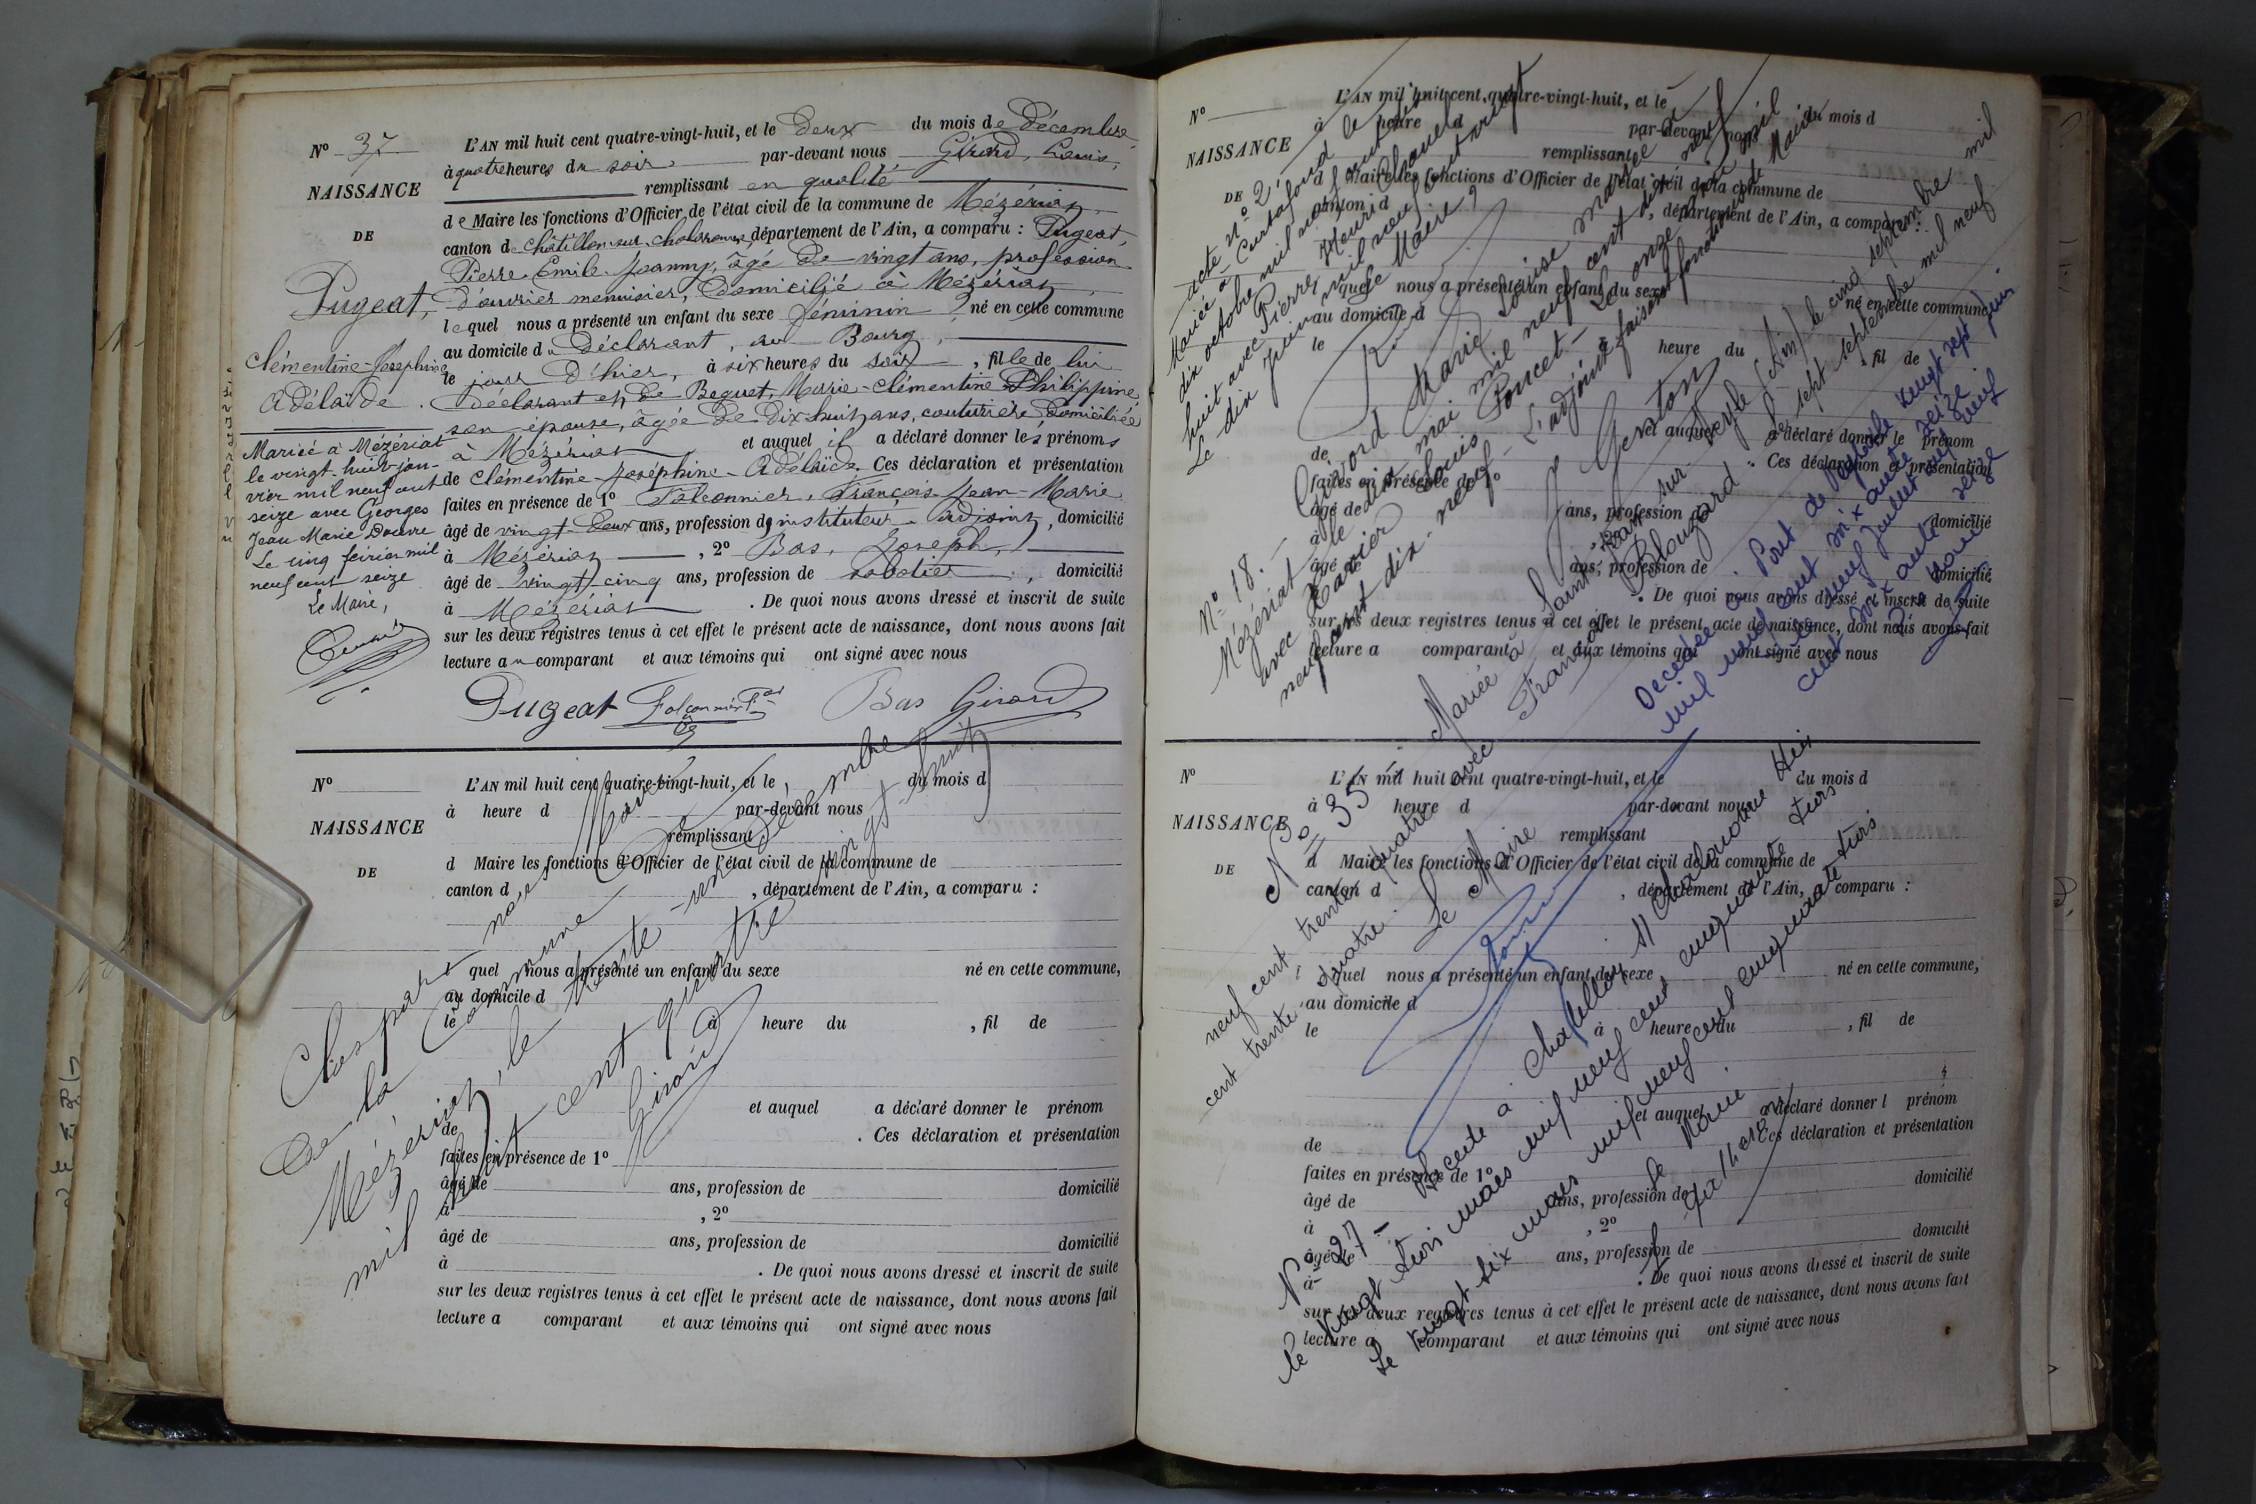 N° 37
NAISSANCE
DE
Pugeat,
Clémentine-Joséphine
Adélaïde.
Mariée à Mézériat
le vingt-huit jan-
vier mil neuf cent
seize avec Georges
Jean Marie Douvre
Le cinq février mil
neuf cent seize
Le Maire,
L'AN mil huit cent quatre-vingt-huit, et le deux du mois de Décembre
à quatre heures du soir, par-devant nous Girard, Louis,
remplissant en qualité
de Maire les fonctions d'Officier de l'état civil de la commune de Mézériat,
canton de Châtillon-sur-Chalaronne, département de l'Ain, a comparu : Pugeat,
Pierre-Emile-Joanny, âgé de vingt ans, profession
d'ouvrier menuisier, Domicilié à Mézériat,
lequel nous a présenté un enfant du sexe féminin, né en cette commune
au domicile du Déclarant, au Bourg,
le jour d'hier, à six heures du soir, fille de lui
Déclarant et de Beguet, Marie-Clémentine Philippine,
son épouse, âgée de dix-huit ans, couturière Domiciliée
à Mézériat et auquel il a déclaré donner les prénoms
de Clémentine-Joséphine-Adélaïde. Ces déclaration et présentation
faites en présence de 1° Falconnier, François Jean-Marie
âgé de vingt-deux ans, profession d'instituteur-adjoint, domicilié
à Mézériat, 2° Bas, Joseph,
âgé de vingt-cinq ans, profession de sabotier, domicilié
à Mézériat. De quoi nous avons dressé et inscrit de suite
sur les deux registres tenus à cet effet le présent acte de naissance, dont nous avons fait
lecture au comparant et aux témoins qui ont signé avec nous
Pugeat Falconnier Fois Bas Girard
N°
NAISSANCE
DE
L'AN mil huit cent quatre-vingt-huit, et le du mois d
à heure d par-devant nous
remplissant
d Maire les fonctions d'Officier de l'état civil de la commune de
canton d , département de l'Ain, a comparu :
quel nous a présenté un enfant du sexe né en cette commune,
au domicile d
le à heure du , fil de
et auquel a déclaré donner le prénom
de . Ces déclaration et présentation
faites en présence de 1°
âgé de ans, profession de domicilié
à , 2°
âgé de ans, profession de domicilié
à . De quoi nous avons dressé et inscrit de suite
sur les deux registres tenus à cet effet le présent acte de naissance, dont nous avons fait
lecture a comparant et aux témoins qui ont signé avec nous
Clos par nous, Maire
de la Commune de
Mézériat, le trente-un décembre
mil huit cent quatre vingt-huit
Girard
N°
NAISSANCE
DE
L'AN mil huit cent quatre-vingt-huit, et le du mois d
à heure d par-devant nous
remplissant
d Maire les fonctions d'Officier de l'état civil de la commune de
canton d , département de l'Ain, a comparu :
quel nous a présenté un enfant du sexe né en cette commune,
au domicile d
le à heure du , fil de
de et auquel a déclaré donner le prénom
. Ces déclaration et présentation
faites en présence de 1°
âgé de ans, profession de domicilié
à , 2°
âgé de ans, profession de domicilié
à . De quoi nous avons dressé et inscrit de suite
sur les deux registres tenus à cet effet le présent acte de naissance, dont nous avons fait
lecture a comparant et aux témoins qui ont signé avec nous
acte n° 2
Mariée à Curtafond le
dix octobre mil neuf cent
huit avec Pierre Henri
Le dix juin mil neuf cent vingt
Le Maire
N° 18. Marie Louise mariée à
Mézériat le dix mai mil neuf cent dix neuf
avec Xavier Louis Poncet - Le onze mai mil
neuf cent dix-neuf - L'adjoint faisant fonction de Maire
J Genton
N° 35 Mariée à Saint Jean sur Veyle (Ain) le cinq septembre mil
neuf cent trente quatre avec François Blouzard Le sept septembre mil neuf
cent trente quatre. Le Maire
Décédée à Pont de Veyle le vingt sept juin
mil neuf cent soixante seize
Le neuf juillet mil neuf
cent soixante seize
Le Maire
N° 27 - Décédé à Chatillon s/ Chalaronne
le vingt trois mars mil neuf cent cinquante trois
Le vingt six mars mil neuf cent cinquante trois
Le Maire
N°
NAISSANCE
DE
L'AN mil huit cent quatre-vingt-huit, et le du mois d
à heure d par-devant nous
remplissant
d Maire les fonctions d'Officier de l'état civil de la commune de
canton d , département de l'Ain, a comparu :
quel nous a présenté un enfant du sexe né en cette commune,
au domicile d
le à heure du , fil de
et auquel a déclaré donner l prénom
de . Ces déclaration et présentation
faites en présence de 1°
âgé de ans, profession de domicilié
à , 2°
âgé de ans, profession de domicilié
à . De quoi nous avons dressé et inscrit de suite
sur les deux registres tenus à cet effet le présent acte de naissance, dont nous avons fait
lecture a comparant et aux témoins qui ont signé avec nous